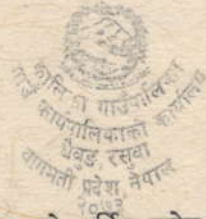 कालिका गाउँपालिका
गाउँ कार्यपालिकाको कार्यालय
धैवुङ, रसुवा
वागमती प्रदेश, नेपाल
२०७३